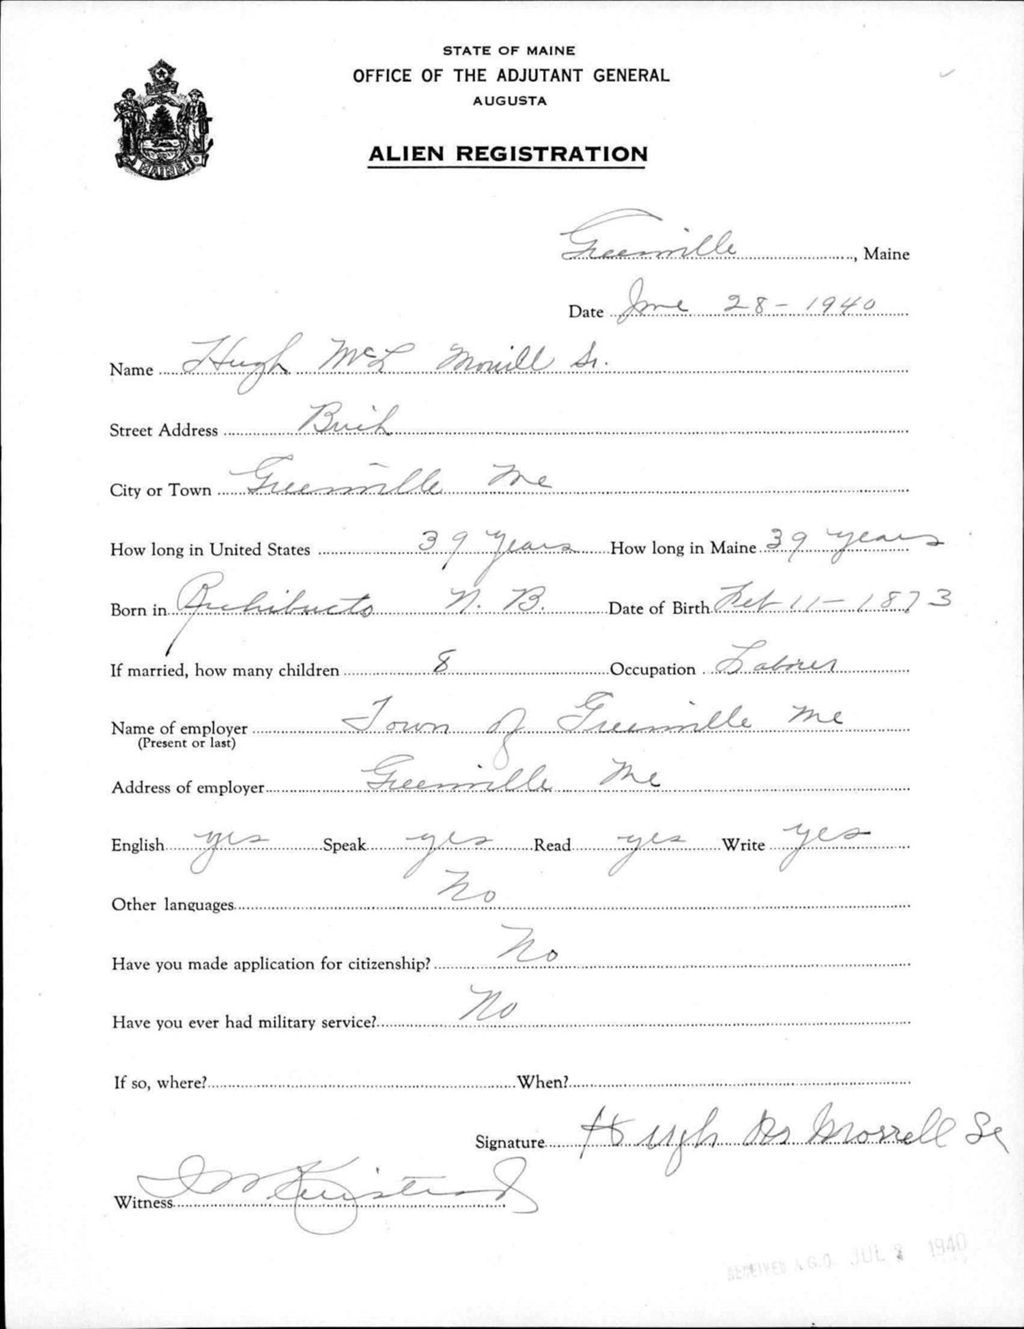 STATE OF MAINE
OFFICE OF THE ADJUTANT GENERAL
AUGUSTA
ALIEN REGISTRATION
Greenville, Maine
Date June 28 - 1940
Name Hugh McL Morrill Sr.
Street Address Birch
City or Town Greenville Me
How long in United States 39 years How long in Maine 39 years
Born in Richibucto N. B. Date of Birth Feb 11 - 1873
If married, how many children 8 Occupation Laborer
Name of employer Town of Greenville Me
(Present or last)
Address of employer Greenville Me
English yes Speak yes Read yes Write yes
Other languages No
Have you made application for citizenship? No
Have you ever had military service? No
If so, where? When?
Signature Hugh Morrell Sr
Witness
RECEIVED A.G.O. JUL 2 1940